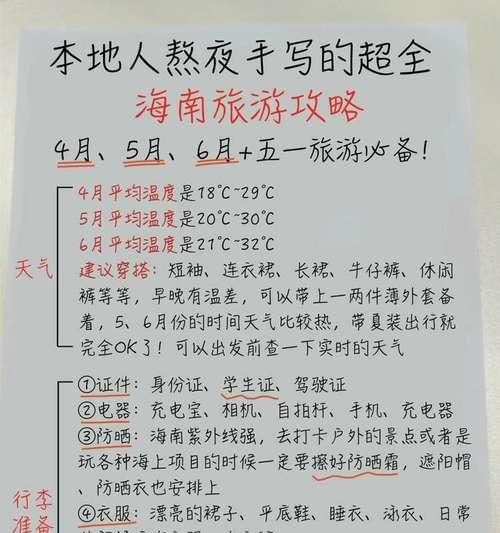 本地人熬夜手写的超全
海南旅游攻略
4月、5月、6月+五一旅游必备!
4月平均温度是18℃~29℃
5月平均温度是20℃~30℃
6月平均温度是21℃~32℃
天气
建议穿搭：短袖、连衣裙、长裙、牛仔裤、休闲
裤等等，早晚有温差，可以带上一两件薄外套备
着，5、6月份的时间天气比较热，带夏装出行就
完全OK了！可以出发前查一下实时的天气
①证件：身份证、学生证、驾驶证
②电器：充电宝、相机、自拍杆、手机、充电器
③防晒：海南紫外线强，去打卡户外的景点或者是
玩各种海上项目的时候一定要擦好防晒霜，遮阳帽
、防晒衣也安排上
行李
准备
④衣服：漂亮的裙子、平底鞋、睡衣、泳衣、日常